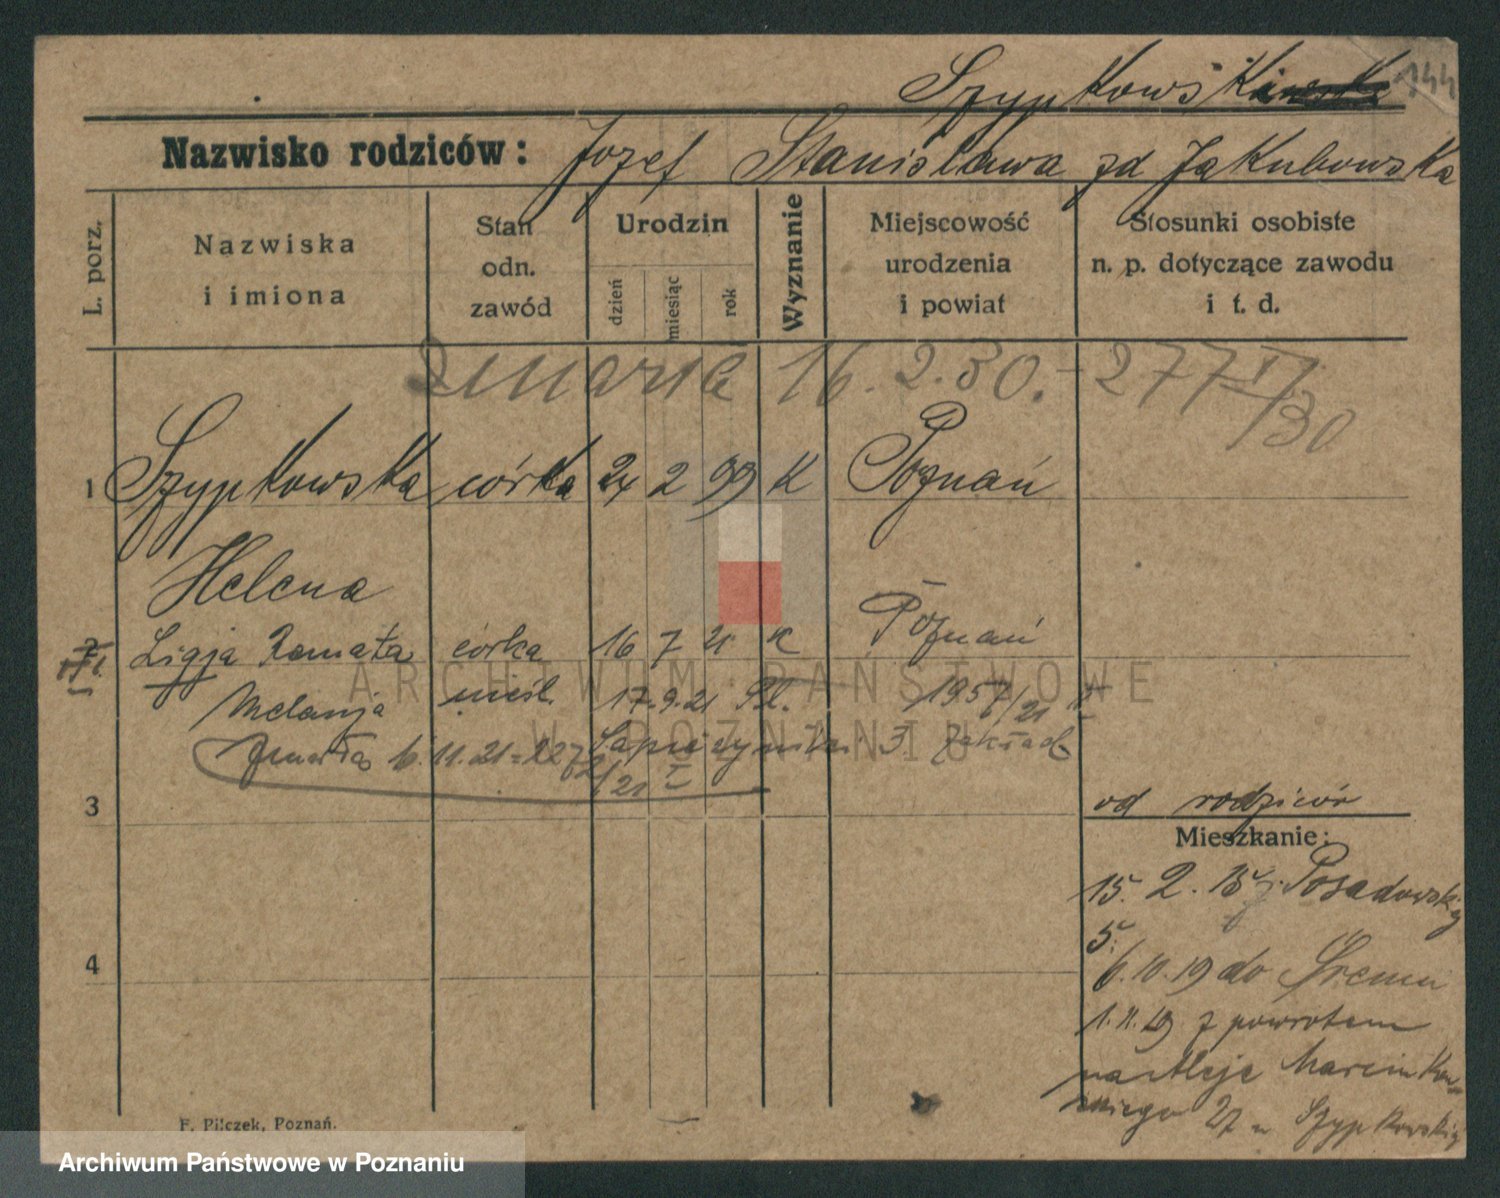 Szypkowski 144
Nazwisko rodziców: Józef Stanisława zd Jakubowska
L. porz.
Nazwiska i imiona
Stan odn. zawód
Urodzin
dzień
miesiąc
rok
Wyznanie
Miejscowość urodzenia i powiat
Stosunki osobiste n. p. dotyczące zawodu i t. d.
zmarła 16.2.30.-277 II/30
1 Szypkowska córka 24 2 99 K Poznań
Helena
2 Ligja Renata córka 16 7 21 K Poznań
Melanja nieśl. 17.9.21 1957/21 II
Zmarła 6.11.21=227 /21 I 3. Zakład
3
od rodziców
Mieszkanie:
15. 2. Posadowskiego
5.
4
6.10.19 do Śremu
1.11.19 z powrotem
na Aleje Marcinkow-
skiego 27 u Szypkowskiej
F. Pilczek, Poznań.
ARCHIWUM PAŃSTWOWE
W POZNANIU
Archiwum Państwowe w Poznaniu